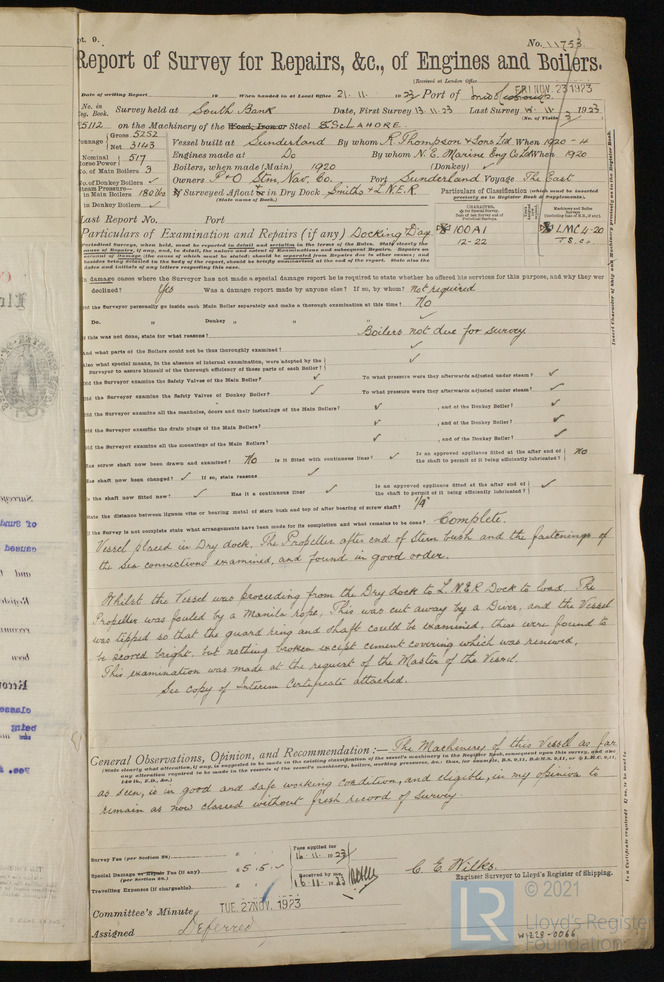 pt. 9.
No. 11753
Report of Survey for Repairs, &c., of Engines and Boilers.
(Received at London Office FRI. NOV. 23 1923
Date of writing Report 19 When handed in at Local Office 21. 11. 1923 Port of Middlesbrough
No. in Reg. Book. Survey held at South Bank Date, First Survey 13 11 23 Last Survey 11. 1923
(No. of Visits 3)
5112 on the Machinery of the Wood, Iron or Steel S.S. LAHORE
Tonnage Gross 5252 Net 3143 Vessel built at Sunderland By whom R. Thompson & Sons Ltd When 1920 - 4
Nominal Horse Power 517 Engines made at Do By whom N. E. Marine Eng Co Ld When 1920
No. of Main Boilers 3 Boilers, when made (Main) 1920 (Donkey) ✓
No. of Donkey Boilers ✓ Owners P & O Stm. Nav. Co. Port Sunderland Voyage The East
Steam Pressure in Main Boilers 180 lbs If Surveyed Afloat or in Dry Dock Smiths & L.N.E.R
(State name of Dock.)
in Donkey Boilers ✓
Particulars of Classification (which must be inserted precisely as in Register Book & Supplements).
Last Report No. Port
Particulars of Examination and Repairs (if any) Docking Dmg.
100A1 12-22
LMC 4-20 T.S. C.
Periodical Surveys, when held, must be reported in detail and seriatim in the terms of the Rules. State clearly the
cause of Repairs, if any, and, in detail, the nature and extent of Examinations and subsequent Repairs. Repairs on
account of Damage (the cause of which must be stated) should be separated from Repairs due to other causes; and
besides being detailed in the body of the report, should be briefly summarised at the end of the report. State also the
dates and initials of any letters respecting this case.
In damage cases where the Surveyor has not made a special damage report he is required to state whether he offered his services for this purpose, and why they were
declined? Yes Was a damage report made by anyone else? If so, by whom? not required
Did the Surveyor personally go inside each Main Boiler separately and make a thorough examination at this time? No
Do. " Donkey " " " ✓
If this was not done, state for what reasons? Boilers not due for survey
And what parts of the Boilers could not be thus thoroughly examined? ✓
Also what special means, in the absence of internal examination, were adopted by the
Surveyor to assure himself of the thorough efficiency of those parts of each Boiler? ✓
Did the Surveyor examine the Safety Valves of the Main Boiler? ✓ To what pressure were they afterwards adjusted under steam? ✓
Did the Surveyor examine the Safety Valves of Donkey Boiler? ✓ To what pressure were they afterwards adjusted under steam? ✓
Did the Surveyor examine all the manholes, doors and their fastenings of the Main Boilers? ✓ , and of the Donkey Boiler? ✓
Did the Surveyor examine the drain plugs of the Main Boilers? ✓ , and of the Donkey Boiler? ✓
Did the Surveyor examine all the mountings of the Main Boilers? ✓ , and of the Donkey Boiler? ✓
Has screw shaft now been drawn and examined? No Is it fitted with continuous liner? ✓ Is an approved appliance fitted at the after end of the shaft to permit of it being efficiently lubricated? no
Has shaft now been changed? ✓ If so, state reasons ✓
Is the shaft now fitted new? ✓ Has it a continuous liner ✓ Is an approved appliance fitted at the after end of the shaft to permit of it being efficiently lubricated? ✓
State the distance between lignum vitæ or bearing metal of stern bush and top of after bearing of screw shaft?
If the Survey is not complete state what arrangements have been made for its completion and what remains to be done? Complete.
Vessel placed in Dry dock. The Propeller after end of Stern bush and the fastenings of
the sea connections examined, and found in good order.
Whilst the Vessel was proceeding from the Dry dock to L.N.E.R Dock to load. The
Propeller was fouled by a Manila rope, This was cut away by a Diver, and the Vessel
was tipped so that the guard ring and shaft could be examined, these were found to
be scored bright, but nothing broken except cement covering which was renewed.
This examination was made at the request of the Master of the Vessel.
See copy of Interim Certificate attached.
General Observations, Opinion, and Recommendation:— The Machinery of this Vessel as far
(State clearly what alteration, if any, is suggested to be made in the existing classification of the vessel's machinery in the Register Book, consequent upon this survey, and also
as seen, is in good and safe working condition, and eligible, in my opinion to
remain as now classed without fresh record of Survey
Survey Fee (per Section 28) Fees applied for 16. 11. 1923
Special Damage or Repair Fee (if any) (per Section 28.) £5. 5. - Received by me, 16. 11. 1923
Travelling Expenses (if chargeable)
C. E. Wilks
Engineer Surveyor to Lloyd's Register of Shipping.
Committee's Minute TUE. 27 NOV. 1923
Assigned Deferred
© 2021
LR
Lloyd's Register
Foundation
W1228-0066